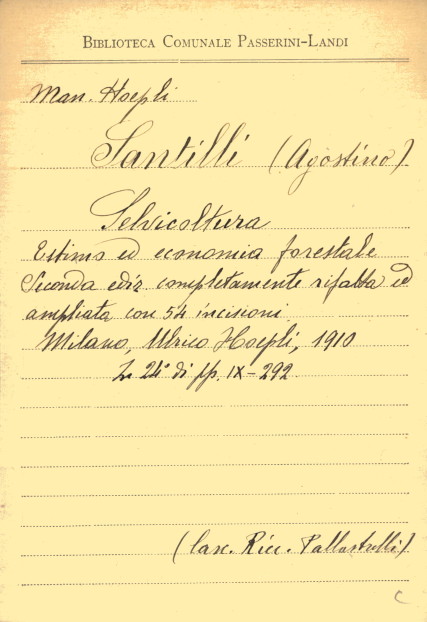 BIBLIOTECA COMUNALE PASSERINI-LANDI
Man. Hoepli
Santilli (Agostino)
Selvicoltura
Estimo ed economia forestale
Seconda ediz. completamente rifatta ed
ampliata con 54 incisioni
Milano, Ulrico Hoepli, 1910
In 24° di pp. IX-292
(Lasc. Ricc. Pallastrelli)
C